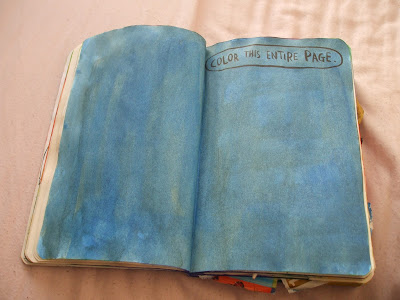 COLOR THIS ENTIRE PAGE.